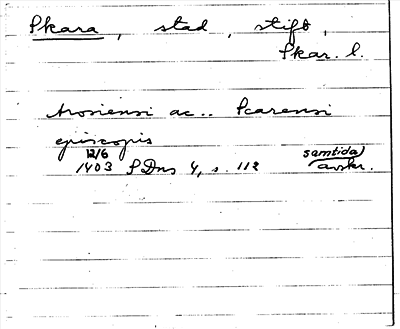 Skara, stad, stift,
Skar. l.
Arosiensi ac.. Scarensi
episcopis
12/6
1403 SDns 4, s. 112
samtida) avskr.